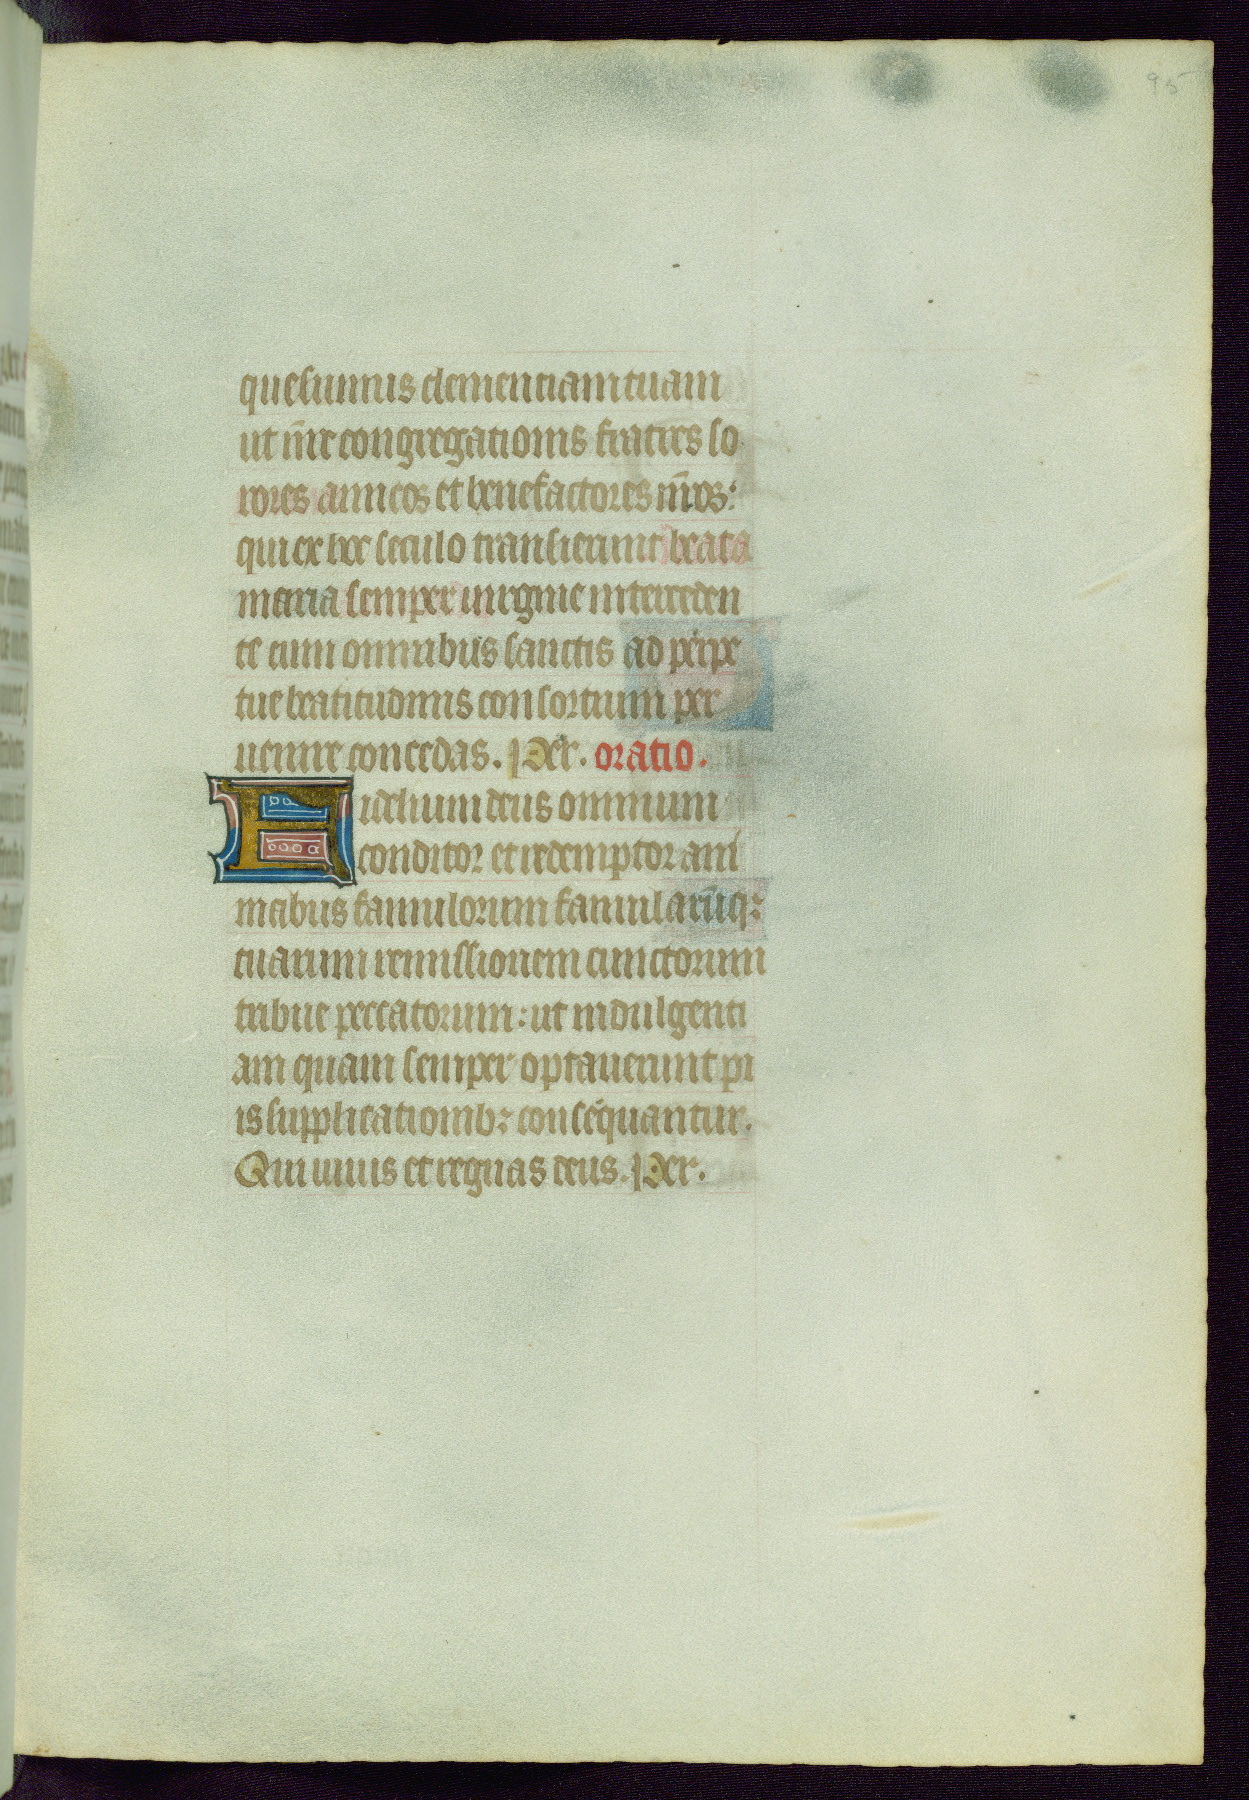 95
quesumus clementiam tuam
ut nr̄e congregationis fratres so
rores amicos et benefactores nr̄os:
qui ex hoc seculo transierunt beata
maria semper uirgine interceden
te cum omnibus sanctis ad perpe
tue beatitudinis consortium per
uenire concedas. Per. oratio.
Fidelium deus omnium
conditor et redemptor ani
mabus famulorum famularūqꝫ
tuarum remissionem cunctorum
tribue peccatorum: ut indulgenti
am quam semper optauerunt pi
is supplicationibꝫ consequantur.
Qui uiuis et regnas deus. Per.